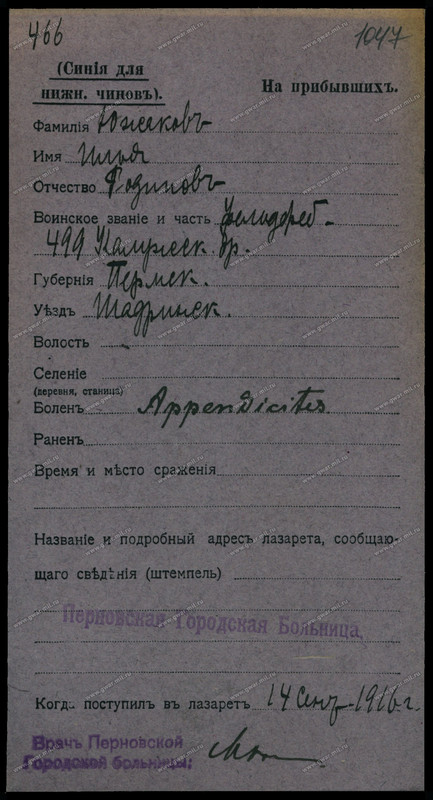 466 1047
(Синія для
нижн. чиновъ).
На прибывшихъ.
Фамилія Южаковъ
Имя Илья
Отчество Родиновъ
Воинское званіе и часть
499 др.
Губернія Пермск.
Уѣздъ Шадринск.
Волость
Селеніе
(деревня, станица)
Боленъ Appendicites
Раненъ
Время и мѣсто сраженія
Названіе и подробный адресъ лазарета, сообщаю-
щаго свѣдѣнія (штемпель)
Перновская Городская Больница.
Когда поступилъ въ лазаретъ 14 Сент 1916 г.
Врачъ Перновской
Городской больницы: